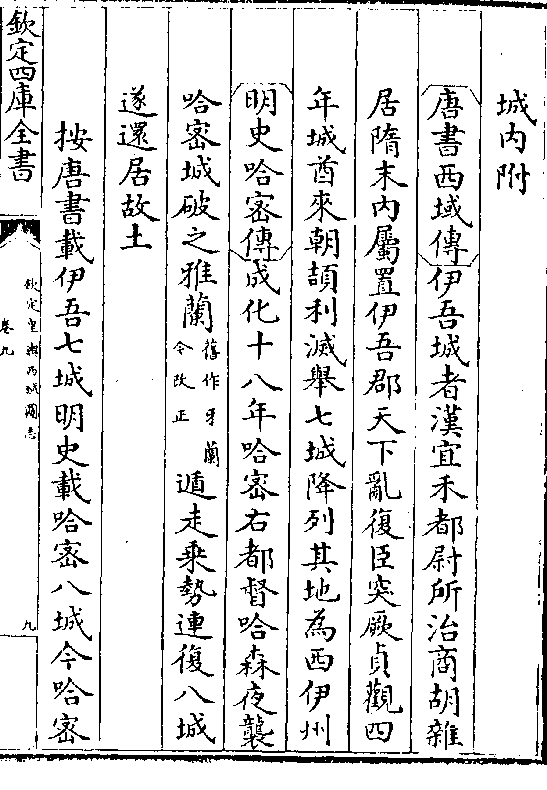 城内附
唐書西域傳伊吾城者漢宜禾都尉所治商胡雜
居隋末内屬置伊吾郡天下亂復臣突厥貞觀四
年城酋來朝頡利滅舉七城降列其地為西伊州
明史哈密傳成化十八年哈密右都督哈森夜襲
哈密城破之雅蘭舊作牙蘭今改正遁走乘勢連復八城
遂還居故土
按唐書載伊吾七城明史載哈密八城今哈密
欽定四庫全書
欽定皇輿西域圖志
卷九
九